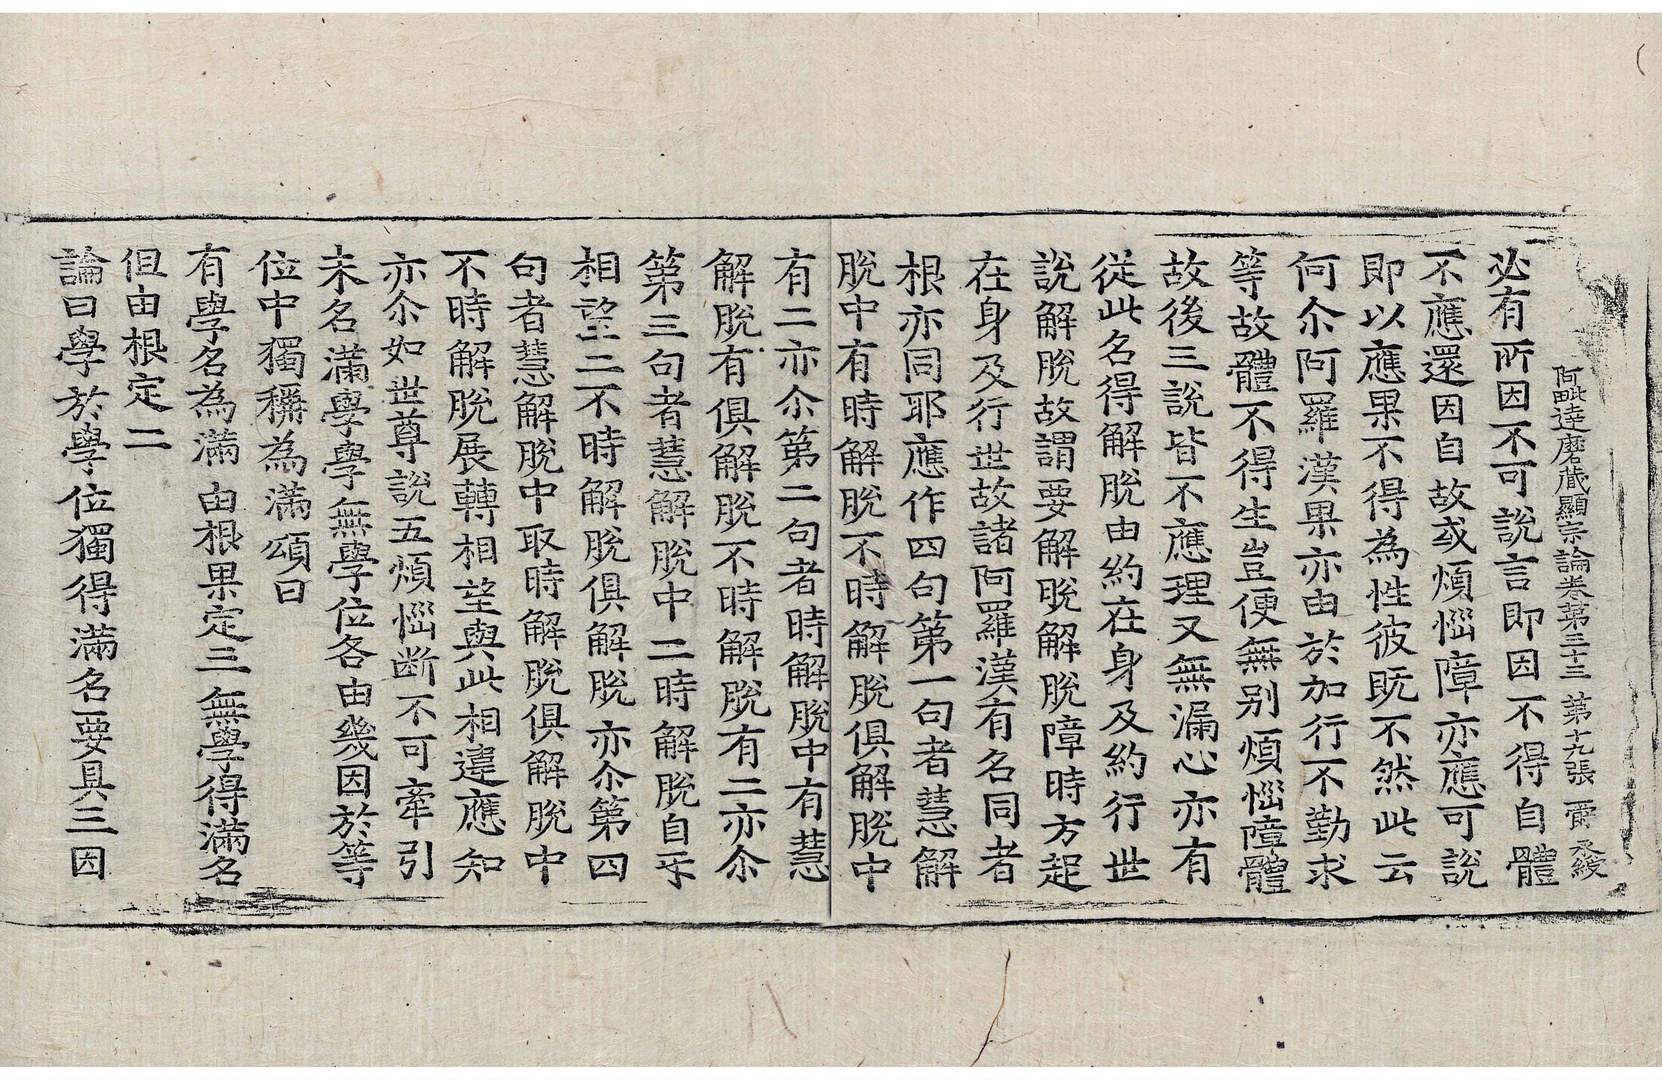 阿毗達磨藏顯宗論卷第三十三 第十九張 爾 永綏
必有所因不可說言即因不得自體
不應還因自故或煩惱障亦應可說
即以應果不得為性彼既不然此云
何尒阿羅漢果亦由於加行不勤求
等故體不得生豈便無別煩惱障體
故後三說皆不應理又無漏心亦有
從此名得解脫由約在身及約行世
說解脫故謂要解脫解脫障時方起
在身及行世故諸阿羅漢有名同者
根亦同耶應作四句第一句者慧解
脫中有時解脫不時解脫俱解脫中
有二亦尒第二句者時解脫中有慧
解脫有俱解脫不時解脫有二亦尒
第三句者慧解脫中二時解脫自乎
相望二不時解脫俱解脫亦尒第四
句者慧解脫中取時解脫俱解脫中
不時解脫展轉相望與此相違應知
亦尒如世尊說五煩惱断不可牽引
未名滿學學無學位各由幾因於等
位中獨稱為滿頌曰
有學名為滿 由根果定三 無學得滿名
但由根定二
論曰學於學位獨得滿名要具三因